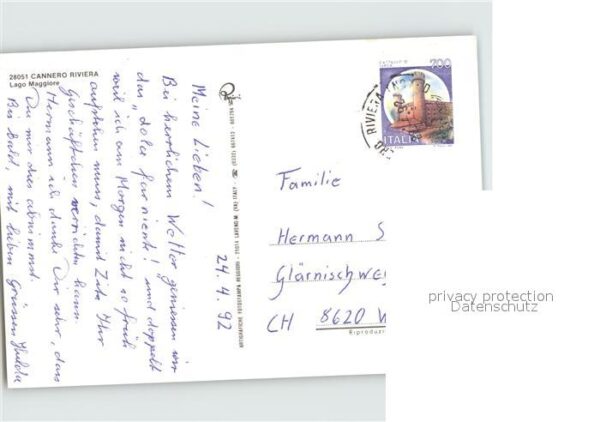 28051 CANNERO RIVIERA
Lago Maggiore
Meine Lieben!
Bei herrlichem Wetter geniessen wir
das "dolce far niente" und doppelt
weil ich am Morgen nicht so früh
aufstehen muss, damit Zita Ihr
Geschäftchen verrichten kann.
Hermann ich danke Dir sehr, dass
Du mir dies abnimmst.
Bis bald, mit lieben Grüssen Hulda
24.4.92
700
ITALIA
RIVIERA
Familie
Hermann S
Glärnischwe
CH 8620 W
Riproduzi
privacy protection
Datenschutz